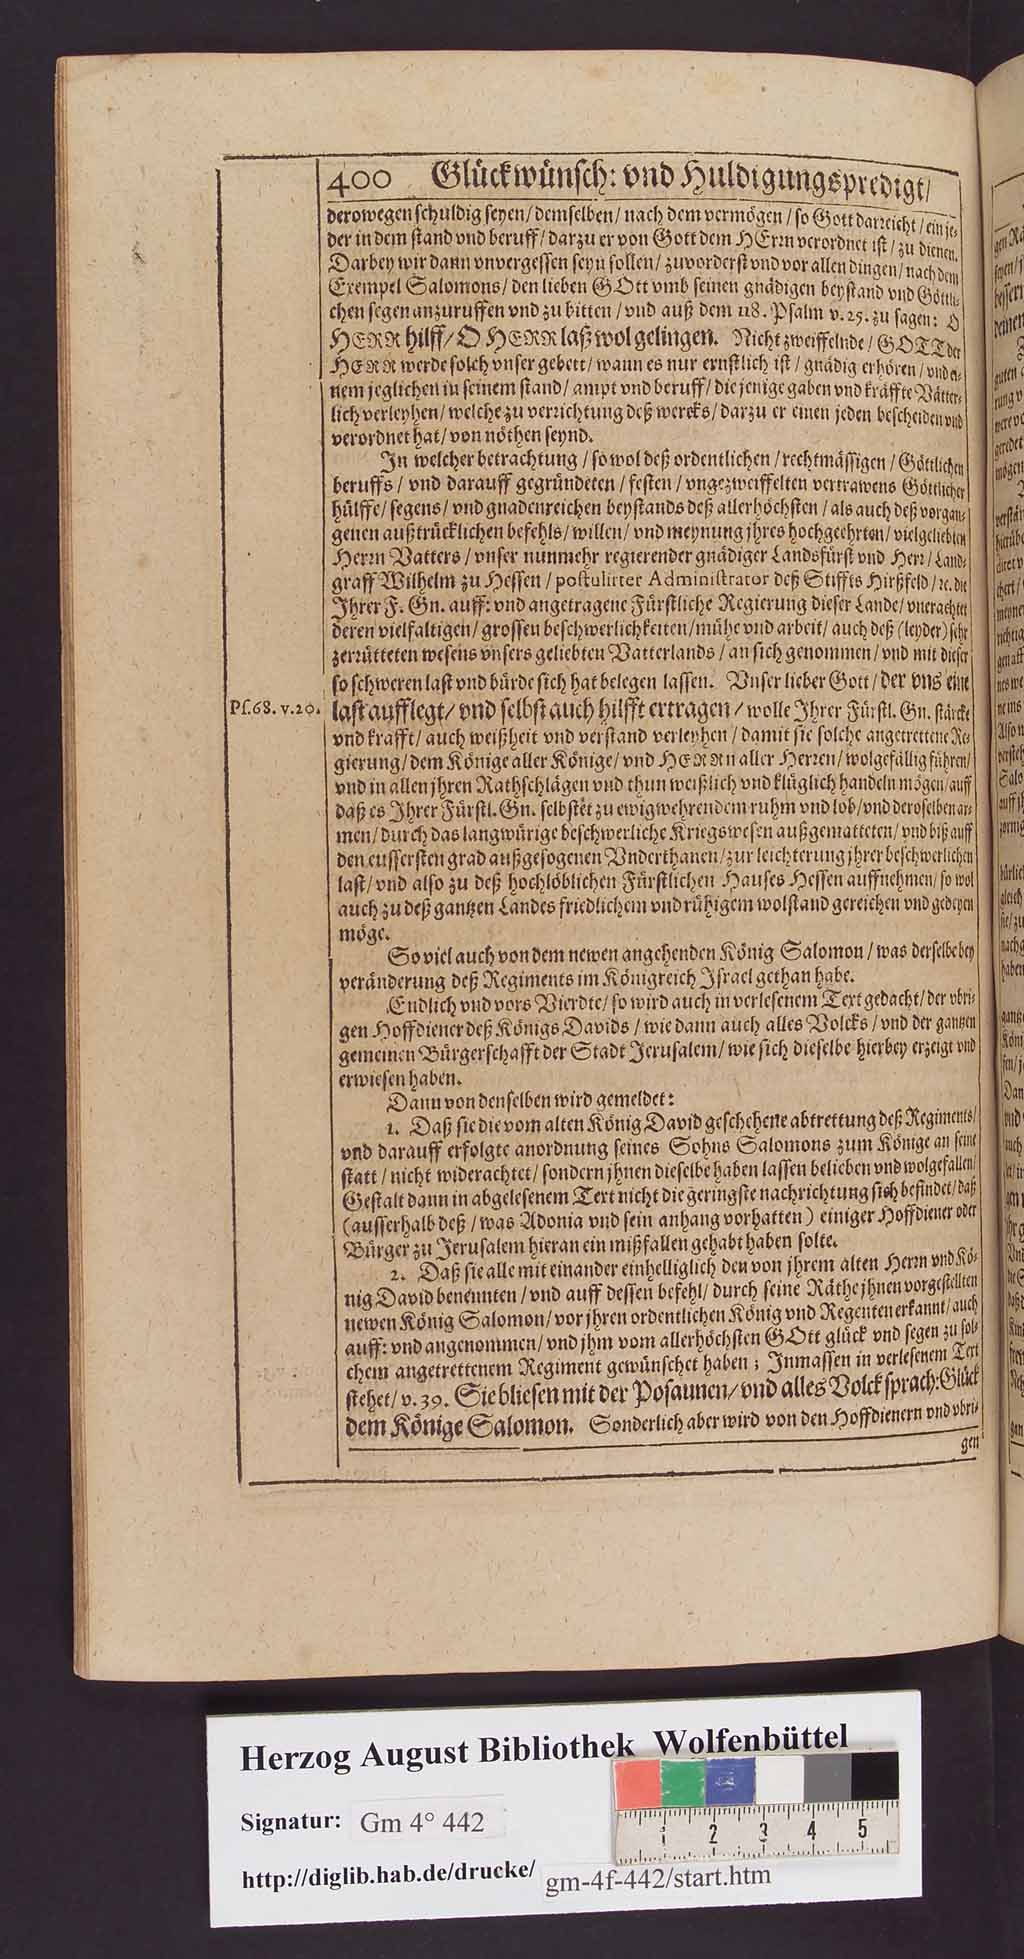 400 Glückwünsch: vnd Huldigungspredigt/
derowegen schuldig seyen/ demselben/ nach dem vermögen/ so Gott darreicht/ ein je-
der in dem stand vnd beruff/ darzu er von Gott dem HErrn verordnet ist/ zu dienen.
Darbey wir dann vnvergessen seyn sollen/ zuvorderst vnd vor allen dingen/ nach dem
Exempel Salomons/ den lieben GOtt vmb seinen gnädigen beystand vnd Göttli-
chen segen anzuruffen vnd zu bitten/ vnd auß dem 118. Psalm v. 25. zu sagen: O
HERR hilff/ O HERR laß wol gelingen. Nicht zweiffelnde/ GOTT der
HERR werde solch vnser gebett/ wann es nur ernstlich ist/ gnädig erhören/ vnd ei-
nem jeglichen in seinem stand/ ampt vnd beruff/ die jenige gaben vnd kräffte Vätter-
lich verleyhen/ welche zu verrichtung deß wercks/ darzu er einen jeden bescheiden vnd
verordnet hat/ von nöthen seynd.
In welcher betrachtung/ so wol deß ordentlichen/ rechtmässigen/ Göttlichen
beruffs/ vnd darauff gegründeten/ festen/ vngezweiffelten vertrawens Göttlicher
hülffe/ segens/ vnd gnadenreichen beystands deß allerhöchsten/ als auch deß vorgan-
genen außtrücklichen befehls/ willen/ vnd meynung jhres hochgeehrten/ vielgeliebten
Herrn Vatters/ vnser nunmehr regierender gnädiger Landsfürst vnd Herr/ Land-
graff Wilhelm zu Hessen/ postulirter Administrator deß Stiffts Hirßfeld/ ꝛc. die
Ihrer F. Gn. auff: vnd angetragene Fürstliche Regierung dieser Lande/ vnerachtet
deren vielfaltigen/ grossen beschwerlichkeiten/ mühe vnd arbeit/ auch deß (leyder) sehr
zerrütteten wesens vnsers geliebten Vatterlands/ an sich genommen/ vnd mit dieser
so schweren last vnd bürde sich hat belegen lassen. Vnser lieber Gott/ der vns eine
Ps. 68. v. 20. last aufflegt/ vnd selbst auch hilfft ertragen/ wolle Ihrer Fürstl. Gn. stärcke
vnd krafft/ auch weißheit vnd verstand verleyhen/ damit sie solche angetrettene Re-
gierung/ dem Könige aller Könige/ vnd HERRn aller Herren/ wolgefällig führen/
vnd in allen jhren Rathschlägen vnd thun weißlich vnd klüglich handeln mögen/ auff
daß es Ihrer Fürstl. Gn. selbstēt zu ewigwehrendem ruhm vnd lob/ vnd deroselben ar-
men/ durch das langwürige beschwerliche Kriegswesen außgematteten/ vnd biß auff
den eussersten grad außgesogenen Vnderthanen/ zur leichterung jhrer beschwerlichen
last/ vnd also zu deß hochlöblichen Fürstlichen Hauses Hessen auffnehmen/ so wol
auch zu deß gantzen Landes friedlichem vnd rühigem wolstand gereichen vnd gedeyen
möge.
So viel auch von dem newen angehenden König Salomon/ was derselbe bey
veränderung deß Regiments im Königreich Israel gethan habe.
Endlich vnd vors Vierdte/ so wird auch in verlesenem Text gedacht/ der vbri-
gen Hoffdiener deß Königs Davids/ wie dann auch alles Volcks/ vnd der gantzen
gemeinen Bürgerschafft der Stadt Jerusalem/ wie sich dieselbe hierbey erzeigt vnd
erwiesen haben.
Dann von denselben wird gemeldet:
1. Daß sie die vom alten König David geschehene abtrettung deß Regiments/
vnd darauff erfolgte anordnung seines Sohns Salomons zum Könige an seine
statt/ nicht widerachtet/ sondern jhnen dieselbe haben lassen belieben vnd wolgefallen/
Gestalt dann in abgelesenem Text nicht die geringste nachrichtung sich befindet/ daß
(ausserhalb deß/ was Adonia vnd sein anhang vorhatten) einiger Hoffdiener oder
Bürger zu Jerusalem hieran ein mißfallen gehabt haben solte.
2. Daß sie alle mit einander einhelliglich den von jhrem alten Herrn vnd Kö-
nig David benennten/ vnd auff dessen befehl/ durch seine Räthe jhnen vorgestellten
newen König Salomon/ vor jhren ordentlichen König vnd Regenten erkannt/ auch
auff: vnd angenommen/ vnd jhm vom allerhöchsten GOtt glück vnd segen zu sol-
chem angetrettenem Regiment gewünschet haben; Inmassen in verlesenem Text
stehet/ v. 39. Sie bliesen mit der Posaunen/ vnd alles Volck sprach: Glück
dem Könige Salomon. Sonderlich aber wird von den Hoffdienern vnd vbri-
gen
Herzog August Bibliothek Wolfenbüttel
Signatur: Gm 4° 442
http://diglib.hab.de/drucke/ gm-4f-442/start.htm
1 2 3 4 5